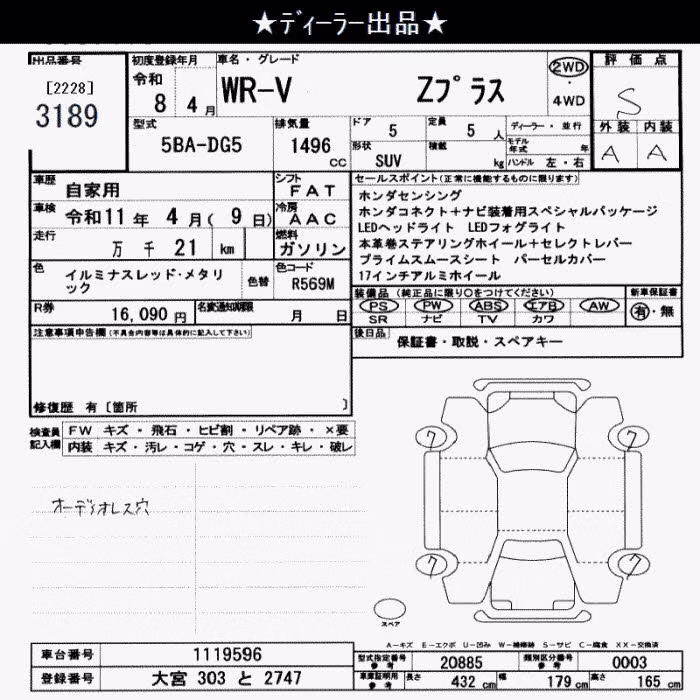 ★ディーラー出品★
出品番号
[2228]
3189
初度登録年月
令和
8 4月
車名・グレード
WR-V Zプラス
2WD
・
4WD
評価点
S
外装 内装
A A
型式
5BA-DG5
排気量
1496
cc
ドア 5
定員 5 人
形状 SUV
積載 kg
ディーラー・並行
モデル年式 年
ハンドル 左・右
車歴 自家用
シフト FAT
車検 令和11年 4月( 9日)
冷房 AAC
走行 万千21 km
燃料 ガソリン
色 イルミナスレッド・メタリック
色替
色コード R569M
R券 16,090円
名変通知期限 月 日
セールスポイント(正常に機能するものに限ります)
ホンダセンシング
ホンダコネクト+ナビ装着用スペシャルパッケージ
LEDヘッドライト LEDフォグライト
本革巻ステアリングホイール+セレクトレバー
プライムスムースシート パーセルカバー
17インチアルミホイール
装備品(純正品に限り○をつけてください)
PS PW ABS エアB AW
SR ナビ TV カワ
新車保証書
有・無
後日品 保証書・取説・スペアキー
注意事項申告欄(不具合内容等は具体的に記入して下さい)
修復歴 有〔箇所 〕
検査員記入欄
FW キズ・飛石・ヒビ割・リペア跡・×要
内装 キズ・汚レ・コゲ・穴・スレ・キレ・破レ
オーディオレス穴
7 7
7 7
スペア
A-キズ E-エクボ U-凹み W-補修跡 S-サビ C-腐食 XX-交換済
車台番号 1119596
登録番号 大宮 303 と 2747
型式指定番号参考 20885
類別区分番号参考 0003
車庫証明用参考 長さ 432cm 幅 179cm 高さ 165cm